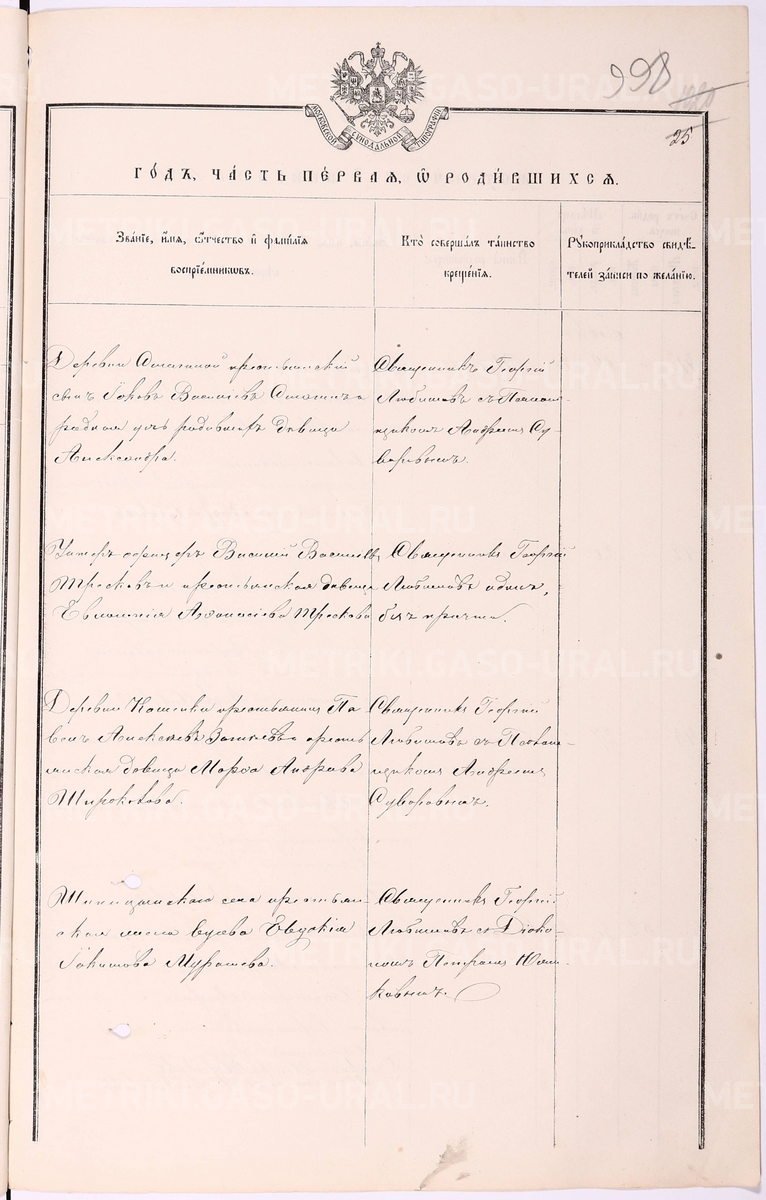 998
25
МОСКОВСКОЙ СѴНОДАЛЬНОЙ ТИПОГРАФІИ
ГО́ДЪ, ЧА́СТЬ ПЕ́РВАЯ, Ѡ҆ РОДИ́ВШИХСѦ.
Зва́нїе, и҆́мѧ, ѻ҆́тчество и҆ фами́лїѧ
воспрїе́мникѡвъ.
Кто̀ соверша́лъ та́инство
креще́нїѧ.
Рꙋкоприкла́дство свидѣ́-
телей за́писи по жела́нїю.
Деревни крестьянскій
сынъ Іаковъ Васильевъ
родная дочь девица
Александра.
Священникъ Георгій
Любимовъ съ Псалом-
щикомъ Андреемъ Су-
воровымъ.
Унтеръ офицеръ Василій Васильевъ
Тросковъ и крестьянская девица
Евлампія Афанасіева Троскова
Священникъ Георгій
Любимовъ одинъ,
безъ причта.
Деревни крестьянинъ Па-
велъ Алексѣевъ и кресть-
янская девица Марѳа Андреева
Широкова.
Священникъ Георгій
Любимовъ съ Псалом-
щикомъ Андреемъ
Суворовымъ.
села крестьян-
ская вдова Евдокія
Іакимова Мурашева.
Священникъ Георгій
Любимовъ съ Діако-
номъ Петромъ
METRIKI.GASO-URAL.RU